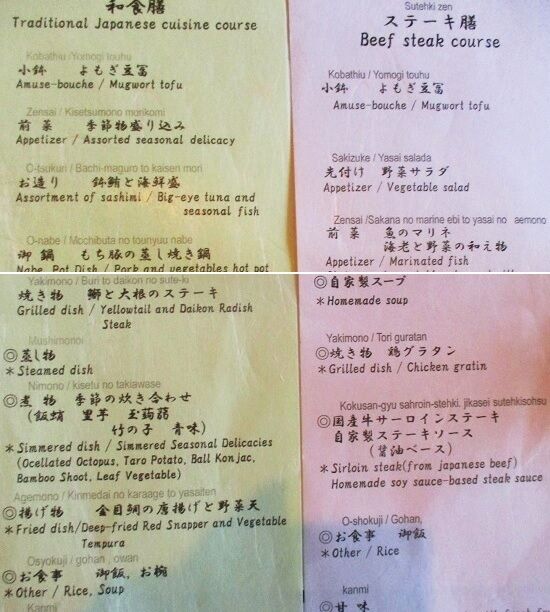 和食膳
Traditional Japanese cuisine course
Kobathiu /Yomogi touhu
小鉢 よもぎ豆冨
Amuse-bouche / Mugwort tofu
Zensai / Kisetsumono morikomi
前菜 季節物盛り込み
Appetizer / Assorted seasonal delicacy
O-tsukuri / Bachi-maguro to kaisen mori
お造り 鉢鮪と海鮮盛
Assortment of sashimi / Big-eye tuna and
seasonal fish
O-nabe / Mochibuta no tounyuu nabe
御鍋 もち豚の蒸し焼き鍋
Nabe Pot Dish / Pork and vegetables hot pot
Yakimono / Buri to daikon no sute-ki
焼き物 鰤と大根のステーキ
Grilled dish / Yellowtail and Daikon Radish
Steak
Mushimonoi
◎蒸し物
*Steamed dish
Nimono / kisetu no takiawase
◎煮物 季節の炊き合わせ
(飯蛸 里芋 玉蒟蒻
竹の子 青味)
*Simmered dish / Simmered Seasonal Delicacies
(Ocellated Octopus, Taro Potato, Ball Konjac,
Bamboo Shoot, Leaf Vegetable)
Agemono / Kinmedai no karaage to yasaiten
◎揚げ物 金目鯛の唐揚げと野菜天
*Fried dish/Deep-fried Red Snapper and Vegetable
Tempura
Osyokuji / gohan , owan
◎お食事 御飯, お椀
*Other / Rice, Soup
Kanmi
Sutehki zen
ステーキ膳
Beef steak course
Kobathiu / Yomogi touhu
小鉢 よもぎ豆冨
Amuse-bouche / Mugwort tofu
Sakizuke / Yasai salada
先付け 野菜サラダ
Appetizer / Vegetable salad
Zensai /Sakana no marine ebi to yasai no aemono
前菜 魚のマリネ
海老と野菜の和え物
Appetizer / Marinated fish
◎自家製スープ
*Homemade soup
Yakimono / Tori guratan
◎焼き物 鶏グラタン
*Grilled dish / Chicken gratin
Kokusan-gyu sahroin-stehki. jikasei sutehkisohsu
◎国産牛サーロインステーキ
自家製ステーキソース
(醤油ベース)
*Sirloin steak(from japanese beef)
Homemade soy sauce-based steak sauce
O-shokuji / Gohan,
◎お食事 御飯
*Other / Rice
kanmi
◎甘味